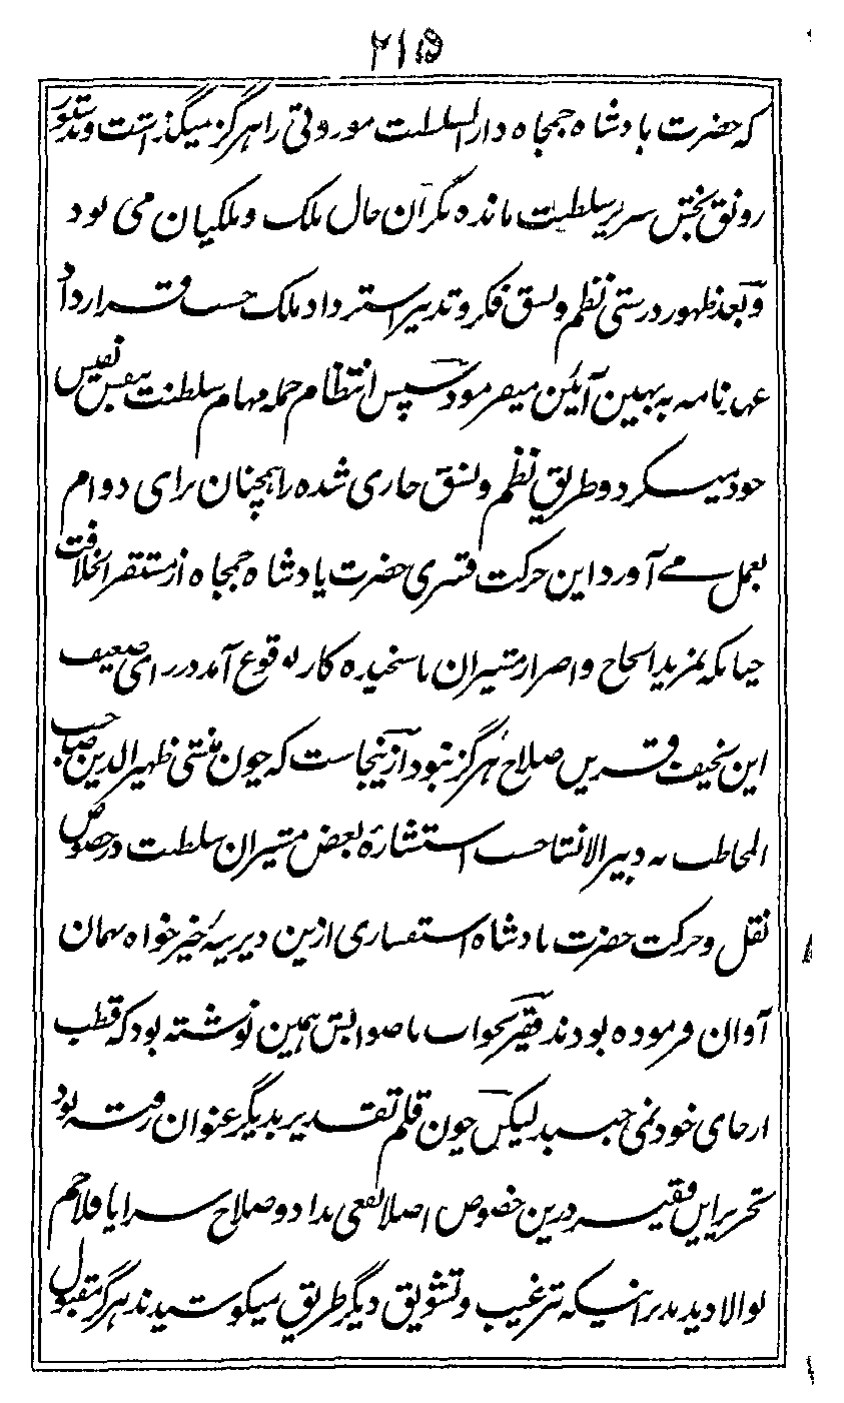 ۲۱۵
که حضرت بادشاه جمجاه دار السلطنت موروثی را هرگز میگذاشت و بدستور
رونق بخش سریر سلطنت مانده نگران حال ملک و ملکیان می بود
و بعد ظهور درستی نظم و نسق فکر و تدبیر استرداد ملک حسب قرارداد
عهدنامه به بهین آئین میفرمود سپس انتظام جمله مهام سلطنت بنفس نفیس
خود میکرد و طریق نظم و نسق جاری شده را همچنان برای دوام
بعمل مے آورد این حرکت قسری حضرت بادشاه جمجاه از مستقر الخلافت
چنانکه بمزید الحاح و اصرار مشیران ناسنجیده کار بوقوع آمد در رای ضعیف
این نحیف قرین صلاح هرگز نبود ازینجاست که چون منشی ظهیر الدین صاحب
المخاطب به دبیر الانشا حسب استشارهٔ بعض مشیران سلطنت در خصوص
نقل و حرکت حضرت بادشاه استفساری ازین دیرینهٔ خیرخواه همان
آوان فرموده بودند فقیر بجواب باصوابش همین نوشته بود که قطب
از جای خود نمی جنبد لیکن چون قلم تقدیر بدیگر عنوان رفته بود
تحریر این فقیر درین خصوص اصلا نفعی نداد و صلاح سراپا فلاحم
بوالا دید مدبرانیکه ترغیب و تشویق دیگر طریق میکوشیدند هرگز مقبول